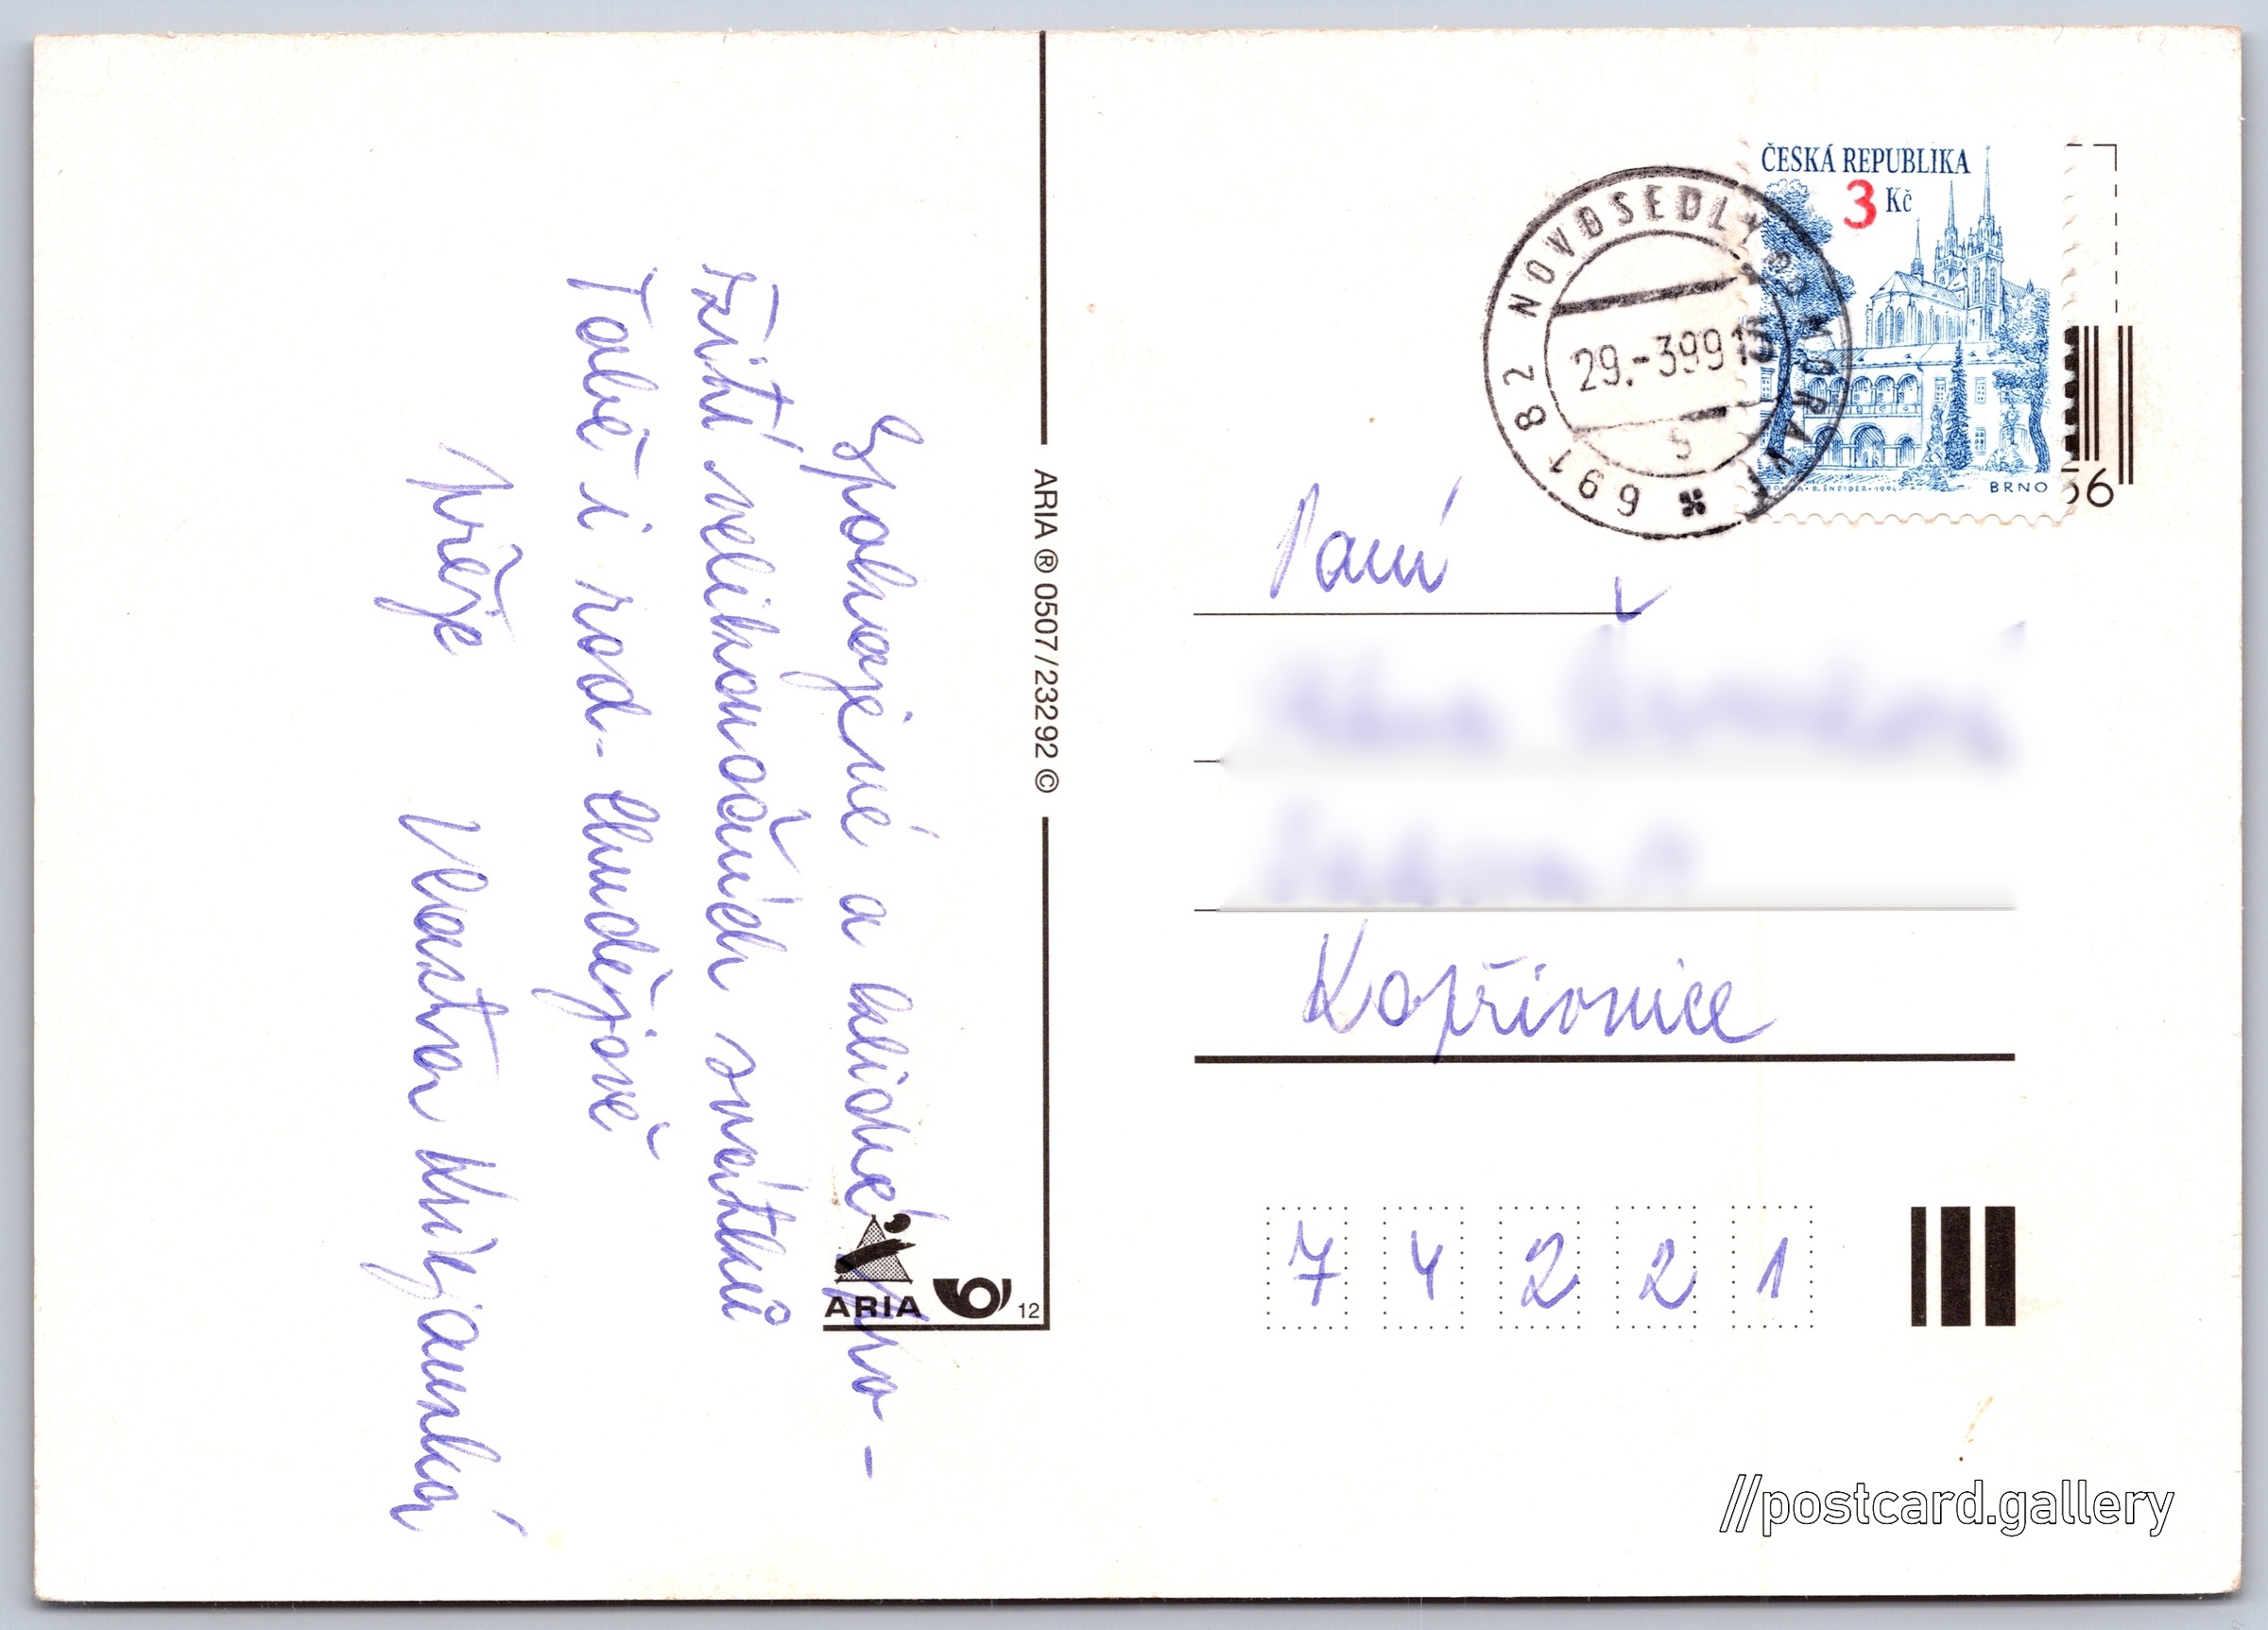 Spokojené a klidné pro-
žití velikonočních svátků
Tobě i rod.
přeje Vlasta
ARIA ® 0507/23292 ©
ARIA
12
ČESKÁ REPUBLIKA
3 Kč
BRNO
691 82 NOVOSEDLY NA MORAVĚ
29.-3.99 15
56
Paní
Kopřivnice
7 4 2 2 1
//postcard.gallery